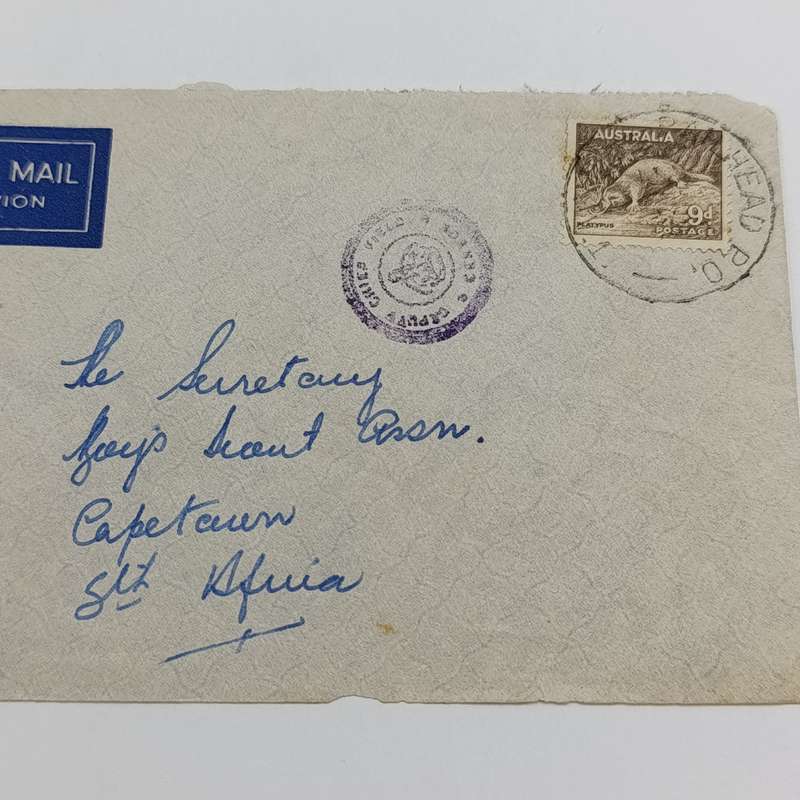 MAIL
ION
AUSTRALIA
PLATYPUS
9d
POSTAGE
HEAD P.O.
DEPUTY CHIEF
The Secretary
Boy's Scout Assn.
Capetown
Sth Africa